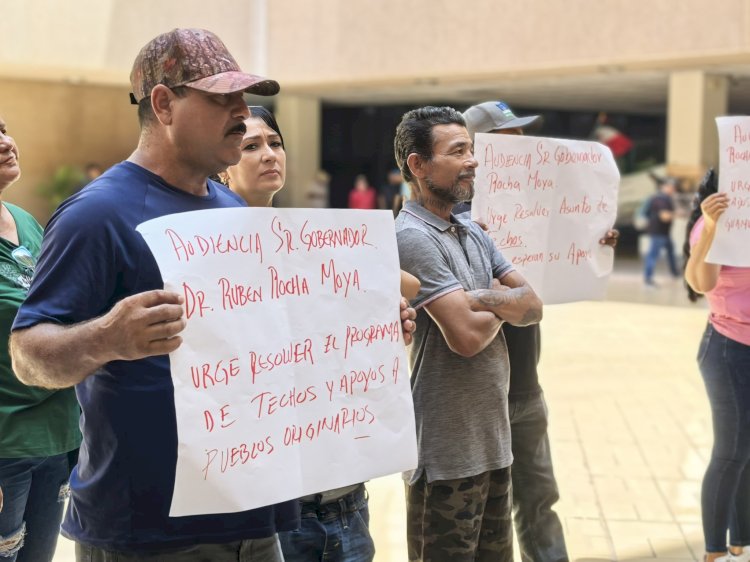 AUDIENCIA SR. GOBERNADOR.
DR. RUBEN ROCHA MOYA.
URGE RESOLVER EL PROGRAMA
DE TECHOS Y APOYOS A
PUEBLOS ORIGINARIOS
AUDIENCIA SR. GOBERNADOR
ROCHA MOYA.
URGE RESOLVER ASUNTO DE
TECHOS.
ESPERAN SU APOYO
ROCHA
URGE